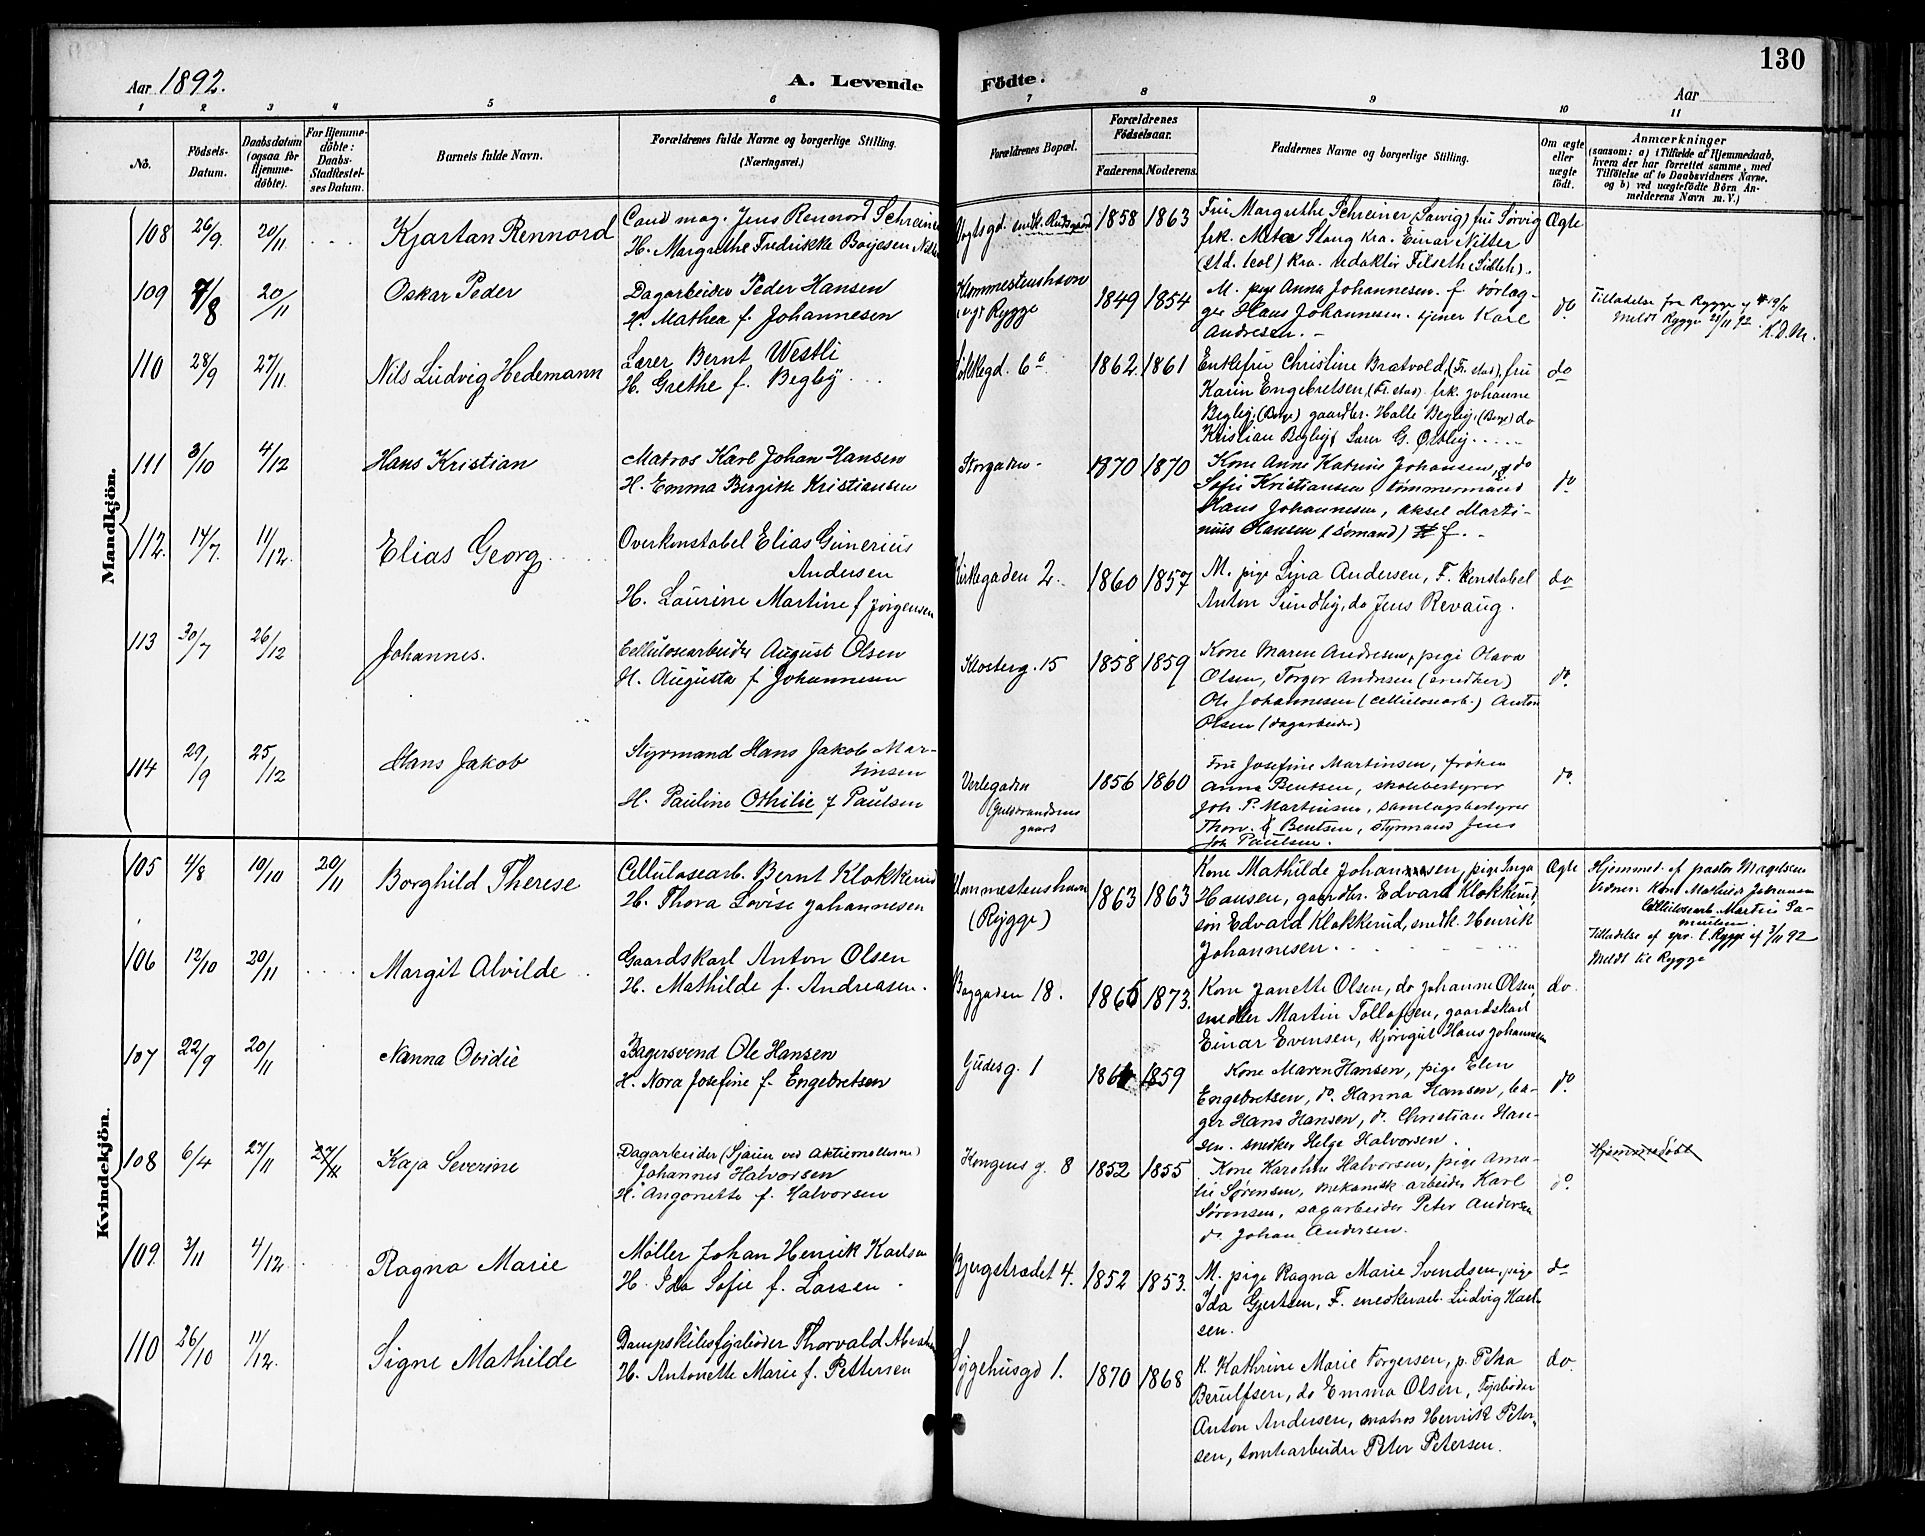 130
Aar 1892.
A. Levende Födte.
Aar
1 2 3 4 5 6 7 8 9 10 11
No.
Födsels-
Datum.
Daabsdatum
(ogsaa for
Hjemme-
döbte).
For Hjemme-
döbte:
Daabs-
Stadfæstel-
ses Datum.
Barnets fulde Navn.
Forældrenes fulde Navne og borgerlige Stilling.
(Næringsvei.)
Forældrenes Bopæl.
Forældrenes
Födselsaar.
Faderens. Moderens.
Faddernes Navne og borgerlige Stilling.
Om ægte
eller
uægte
födt.
Anmærkninger
(saasom: a) i Tilfælde af Hjemmedaab,
hvem der har forrettet samme, med
Tilföielse af to Daabsvidners Navne.
og b) ved uægtefödte Börn An-
melderens Navn m. V.)
Mandkjön.
108 26/9. 20/11 Kjartan Rennord
Cand mag. Jens Rennord Schreiner
H. Margrethe Fredrikke Boijesen
Vogtsgd. 1858 1863
Fru Margrethe Schreiner, fru Sørvig
frk. Meta Stang kra. Einar
kra. redaktør Filseth
Ægte
109 7/8 20/11 Oskar Peder
Dagarbeider Peder Hansen
H. Mathea f. Johannesen
Rygge
1849 1854
M. pige Anna Johannesen. f.
Hans Johannesen. tjener Karl
Andresen.
do.
Tilladelse fra Rygge
Meldt Rygge
110 28/9 27/11. Nils Ludvig Hedemann
Lærer Bernt Westli
H. Grethe f. Begby
1862. 1861
Enkefru Christine Bratvold, (Fr. stad), fru
Karin Engebretsen, (Fr. stad) frk. Johanne
Begby, (Borge) gaardbr. Halle Begby, (Borge) do
Kristian Begby, Lærer G. Østby
do
111 3/10 4/12 Hans Kristian
Matros Karl Johan Hansen
H. Emma Birgitte Kristiansen
Storgaden 1870 1870
Kone Anne Katrine Johansen, do
Sofie Kristiansen, tømmermand
Hans Johannesen, Aksel Marti-
nius Hansen (sømand) f.
do
112. 14/7. 11/12. Elias Georg
Overkonstabel Elias Gunerius
Andersen
H. Laurine Martine f Jørgensen
Kirkegaden 2. 1860 1857
M. pige Lina Andersen, F. konstabel
Anton Sundby, do Jens Revaug.
do
113 30/7 26/12 Johannes.
Cellulosearbeider August Olsen
H. Augusta f Johannesen
Klosterg. 15 1858 1859
Kone Maren Andresen, pige Olava
Olsen, Torger Andresen (snedker)
Ole Johannesen (cellulosearb.) Anton
Olsen (dagarbeider)
do.
114 29/9 25/12 Hans Jakob
Styrmand Hans Jakob Mar-
tinsen
H. Pauline Othilie f Paulsen
Verlegaden
Gulbrandsens
gaard
1856 1860
Fru Josefine Martinsen, frøken
Anna Bentsen, skolebestyrer
Joh. P. Martinsen, samlagsbestyrer
Thorv. Bentsen, styrmand Jens
Joh Paulsen.
do.
Kvindekjön.
105 4/8 19/10 20/11 Borghild Therese
Cellulosearb. Bernt Klokkerud
H. Thora Lovise Johannesen
(Rygge)
1863 1863
Kone Mathilde Johannesen, pige Inga
Hansen, gaardbr. Edvard Klokkerud,
søn Edvard Klokkerud, snedk. Henrik
Johannesen.
Ægte
Hjemmed. af pastor Magelssen
Vidner: Kone Mathilde Johansen
Cellulosearb. Martin Sa-
muelsen.
Tilladelse af spr. t. Rygge af 3/11 92
Meldt til Rygge
106 12/10 20/11 Margit Alvilde
Gaardskarl Anton Olsen
H. Mathilde f. Andreasen.
Baggaden 18. 1865 1873.
Kone Janette Olsen, do Johanne Olsen,
snedker Martin Tollefsen, gaardskarl
Einar Evensen, kjøregut Hans Johannesen
do.
107 22/9 20/11 Nanna Ovidie
Bagersvend Ole Hansen
H. Nora Josefine f. Engebretsen
Gudesg. 1 1859
Kone Maren Hansen, pige Elen
Engebretsen, do. Hanna Hansen, ba-
ger Hans Hansen, do. Christian Han-
sen. snedker Helge Halvorsen.
do.
108 6/4 27/11 27/11 Kaja Severine
Dagarbeider (Sjauer ved Aktiemøllerne)
Johannes Halvorsen
H. Angonette f. Halvorsen
Kongens g. 8 1852 1855
Kone Karoline Halvorsen, pige Ama-
lie Sørensen, mekanisk arbeider Karl
Sørensen, sagarbeider Peter Andersen
do. Johan Andersen.
do.
Hjemmedøbt
109 3/11 4/12. Ragna Marie
Møller Johan Henrik Karlsen
H. Ida Sofie f. Larsen
Bjergstrædet 4. 1852 1853.
M. pige Ragna Marie Svendsen, pige
Ida Gjertsen, F. snedkerarb. Ludvig Karl-
sen.
do
110 26/10 11/12. Signe Mathilde
Dampskibsfyrbøder Thorvald
H. Antonette Marie f. Pettersen
Sygehusgd 1. 1870 1868
K. Kathrine Marie Torgersen, p. Petra
Berulfsen, do Emma Olsen, Fyrbøder
Anton Andersen, matros Henrik Peter-
sen, tomtearbeider Peter Petersen.
do.